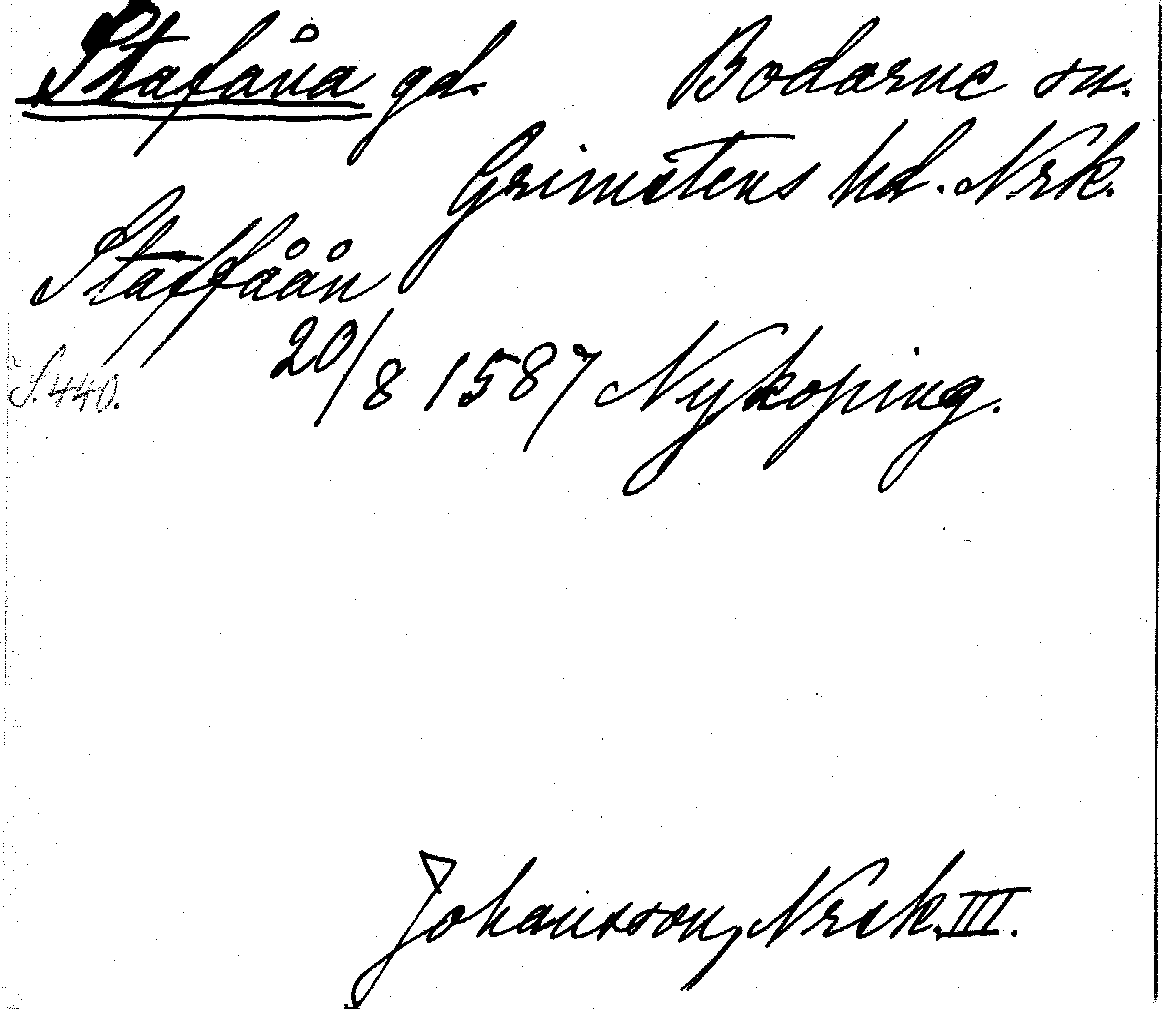 Stafåna gd. Bodarne sn.
Grimstens hd. Nrk.
Staffåån
20/8 1587 Nykoping.
S. 440.
Johansson, Nrck. III.